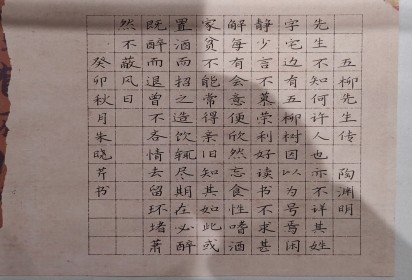 五柳先生传 陶渊明
先生不知何许人也亦不详其姓
字宅边有五柳树因以为号焉闲
静少言不慕荣利好读书不求甚
解每有会意便欣然忘食性嗜酒
家贫不能常得亲旧知其如此或
置酒而招之造饮辄尽期在必醉
既醉而退曾不吝情去留环堵萧
然不蔽风日
癸卯秋月朱晓芹书